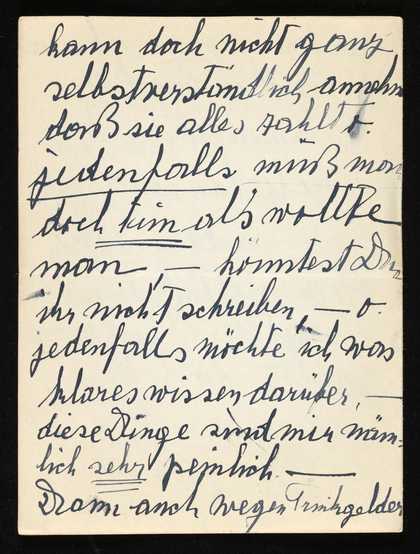 kann doch nicht ganz
selbstverständlich annehm
daß sie alles zahlt o.
jedenfalls müß man
doch tun als wollte
man, — könntest Du
ihr nicht schreiben, — o.
jedenfalls möchte ich was
klares wissen darüber, —
diese Dinge sind mir näm-
lich sehr peinlich. —
Dann auch wegen Trinkgelder